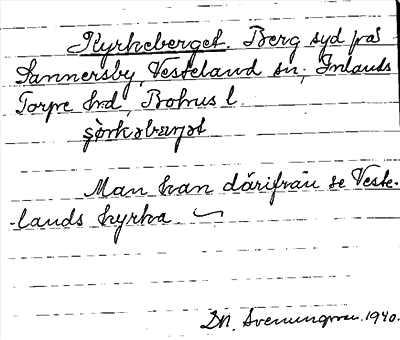 Kyrkeberget. Berg syd på
Sannersby, Västerland sn; Inlands
Torpe hd, Bohus l.
Man kan därifrån se Väster-
-lands kyrka
D.N. Svenungsson. 1940.